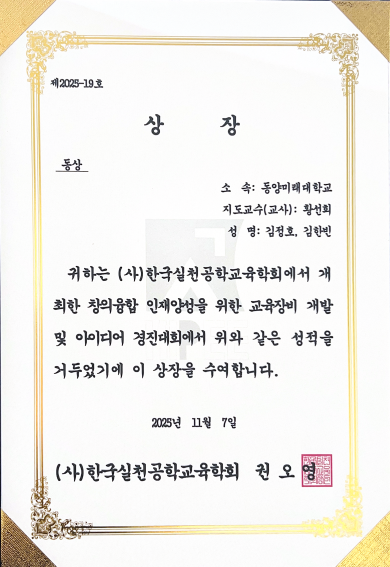 제2025-19호
상 장
동상
소 속: 동양미래대학교
지도교수(교사): 황선희
성 명: 김정호, 김한빈
귀하는 (사)한국실천공학교육학회에서 개
최한 창의융합 인재양성을 위한 교육장비 개발
및 아이디어 경진대회에서 위와 같은 성적을
거두었기에 이 상장을 수여합니다.
2025년 11월 7일
(사)한국실천공학교육학회 권오영